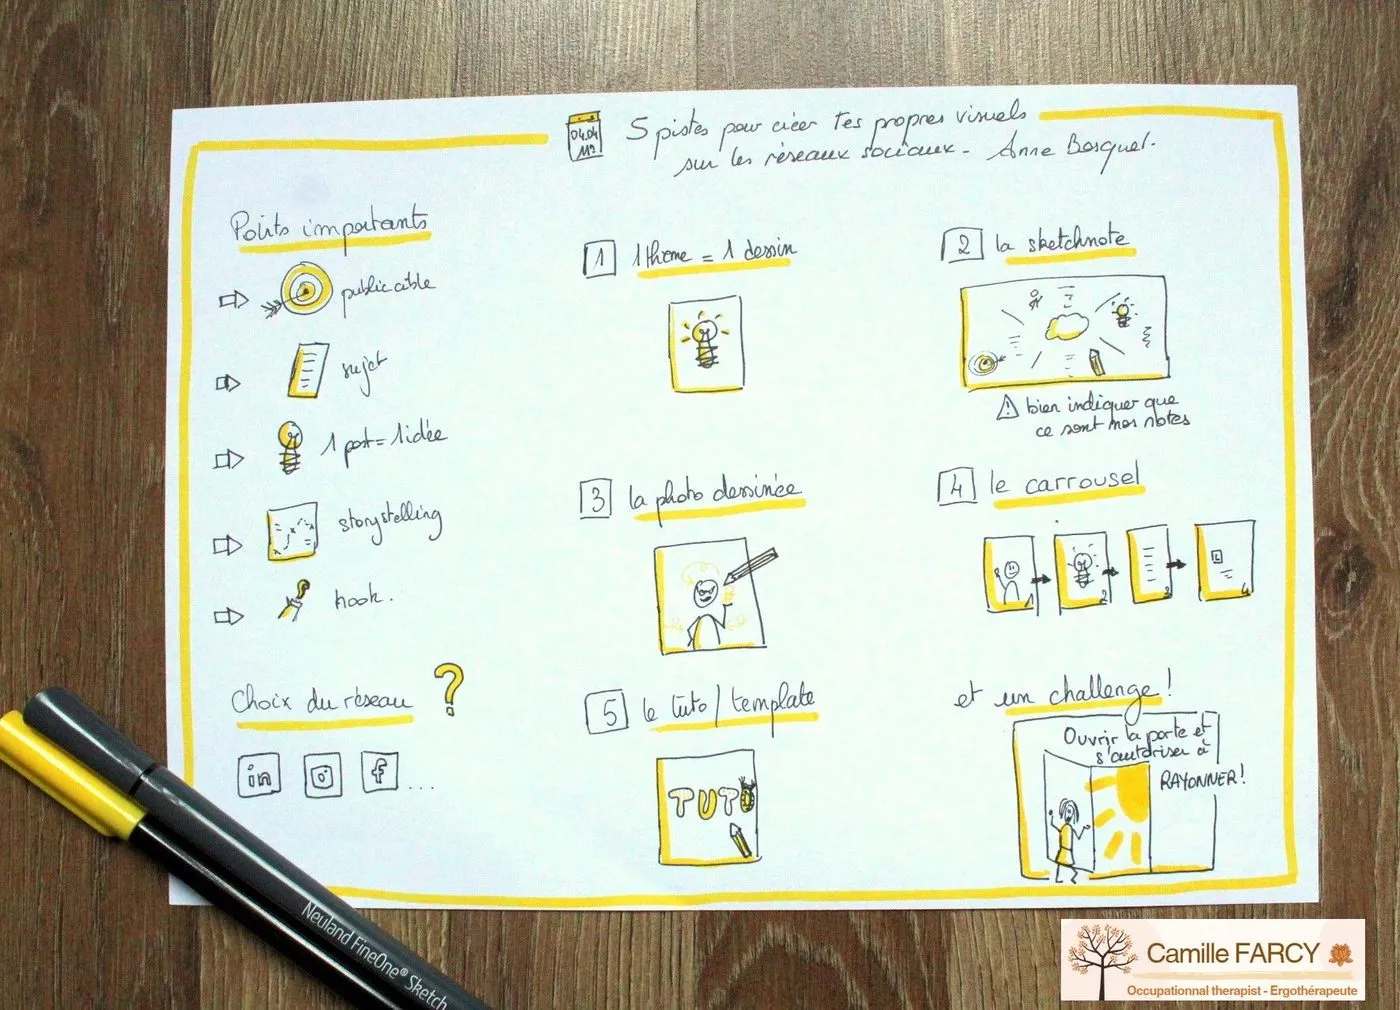 04.04
5 pistes pour créer tes propres visuels
sur les réseaux sociaux - Anne Bosquet.
Points importants
public cible
sujet
1 post = 1 idée
storystelling
hook.
Choix du réseau ?
in f ...
1 1 thème = 1 dessin
2 la sketchnote
⚠ bien indiquer que
ce sont mes notes
3 la photo dessinée
4 le carrousel
1 2 3 4
5 le tuto / template
TUTO
et un challenge !
Ouvrir la porte et
s'autoriser à
RAYONNER !
Neuland FineOne® Sketch
Camille FARCY
Occupationnal therapist - Ergothérapeute